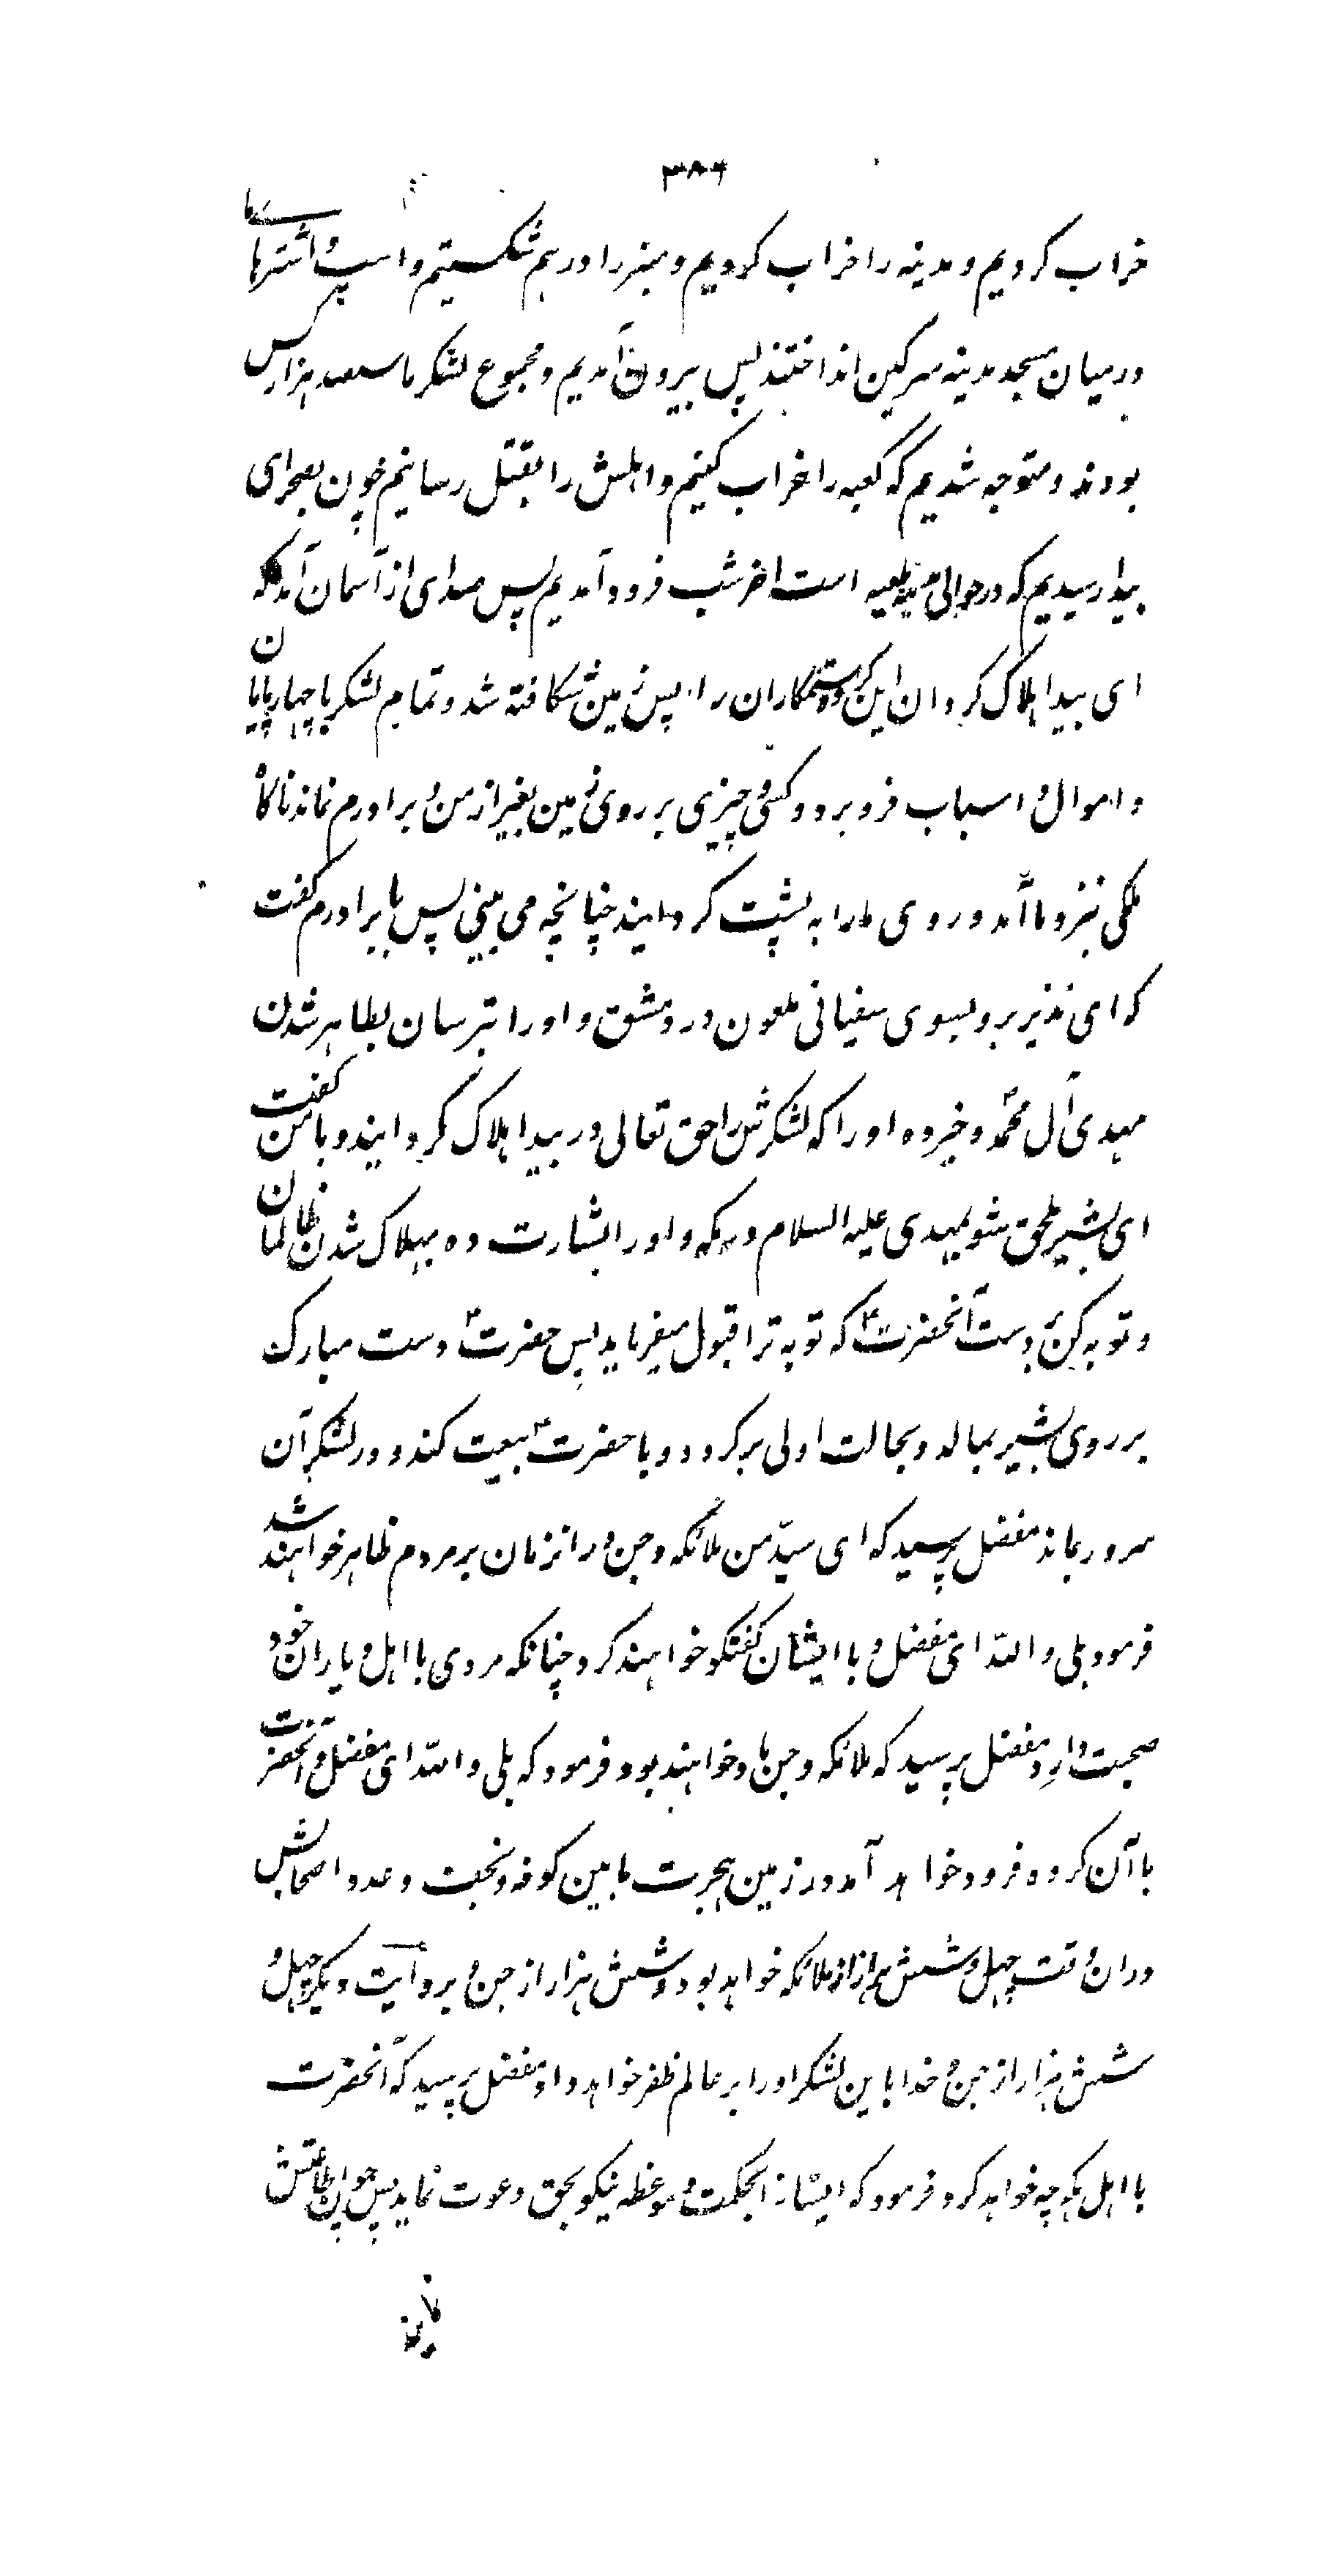 ۳۸۶
خراب کردیم و مدینه را خراب کردیم و منبر را درهم شکستیم و اسپ و اشترهای ما
درمیان مسجد مدینه سرگین انداختند پس بیرون آمدیم و مجموع لشکر ما سیصد هزار کس
بودند و متوجه شدیم که کعبه را خراب کنیم و اهلش را بقتل رسانیم چون بصحرای
بیدا رسیدیم که در حوالی مدینه طیبه است اخر شب فرود آمدیم پس صدای از آسمان آمد که
ای بیدا هلاک گردان این گروه ستمکاران را پس زمین شگافته شد و تمام لشکر با چهارپایان
و اموال و اسباب فرو برد و کسی و چیزی بر روی زمین بغیر از من و برادرم نماند ناگاه
ملکی نزد ما آمد و روی ما را به پشت گردانید چنانچه می بینی پس با برادرم گفت
که ای نذیر برو بسوی سفیانی ملعون در دمشق و او را بترسان بظاهر شدن
مهدی آل محمد و خبر ده او را که لشکرش را حق تعالی در بیدا هلاک گردانید و با من گفت
ای بشیر ملحق شو بمهدی علیه السلام در مکه و او را بشارت ده بهلاک شدن ظالمان
و توبه کن بر دست آنحضرت ع که توبه ترا قبول میفرماید پس حضرت ع دست مبارک
بر روی بشیر بمالد و بحالت اولی برگردد و با حضرت ع بیعت کند و در لشکر آن
سرور بماند مفضل پرسید که ای سیّد من ملائکه و جن در انزمان بر مردم ظاهر خواهند شد
فرمود بلی والله ای مفضل و با ایشان گفتگو خواهند کرد چنانکه مردی با اهل و یاران خود
صحبت دارد مفضل پرسید که ملائکه و جن با او خواهند بود فرمود که بلی والله ای مفضل و آنحضرت
با آن گروه فرود خواهد آمد در زمین هجرت مابین کوفه و نجف و عدد اصحابش
دران وقت چهل و شش هزار از ملائکه خواهد بود و شش هزار از جن و بروایت دیگر چهل و
شش هزار از جن و خدا باین لشکر او را بر عالم ظفر خواهد داد مفضل پرسید که آنحضرت
با اهل مکه چه خواهد کرد فرمود که ایشانرا بحکمت و موعظه نیکو بحق دعوت نماید پس چون اطاعتش
نمایند